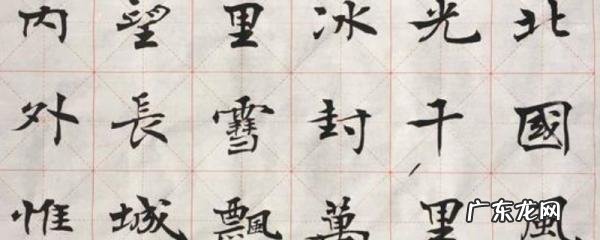 北國風
光千里
冰封萬
里雪飄
望長城
內外惟
广东龙网